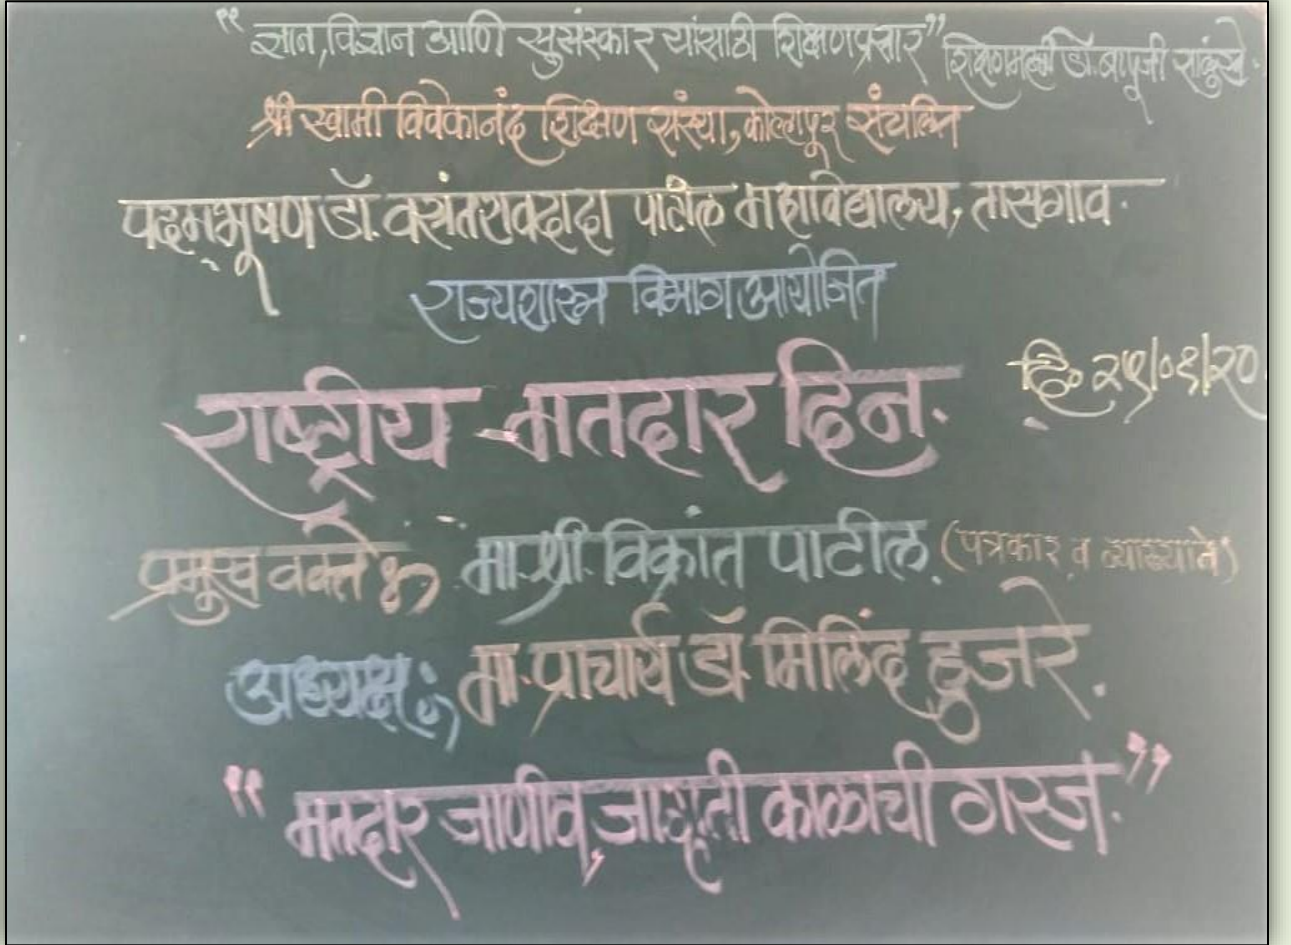 “ज्ञान, विज्ञान आणि सुसंस्कार यांसाठी शिक्षणप्रसार” शिक्षणमहर्षी डॉ. बापूजी साळुंखे.
श्री स्वामी विवेकानंद शिक्षण संस्था, कोल्हापूर संचलित
पद्मभूषण डॉ. वसंतरावदादा पाटील महाविद्यालय, तासगांव.
राज्यशास्त्र विभाग आयोजित
दि. २५/०१/२०
राष्ट्रीय मतदार दिन.
प्रमुख वक्ते : मा. श्री. विक्रांत पाटील. (पत्रकार व व्याख्याते)
अध्यक्ष : मा. प्राचार्य डॉ मिलिंद हुजरे.
“मतदार जाणीव, जागृती काळाची गरज.”